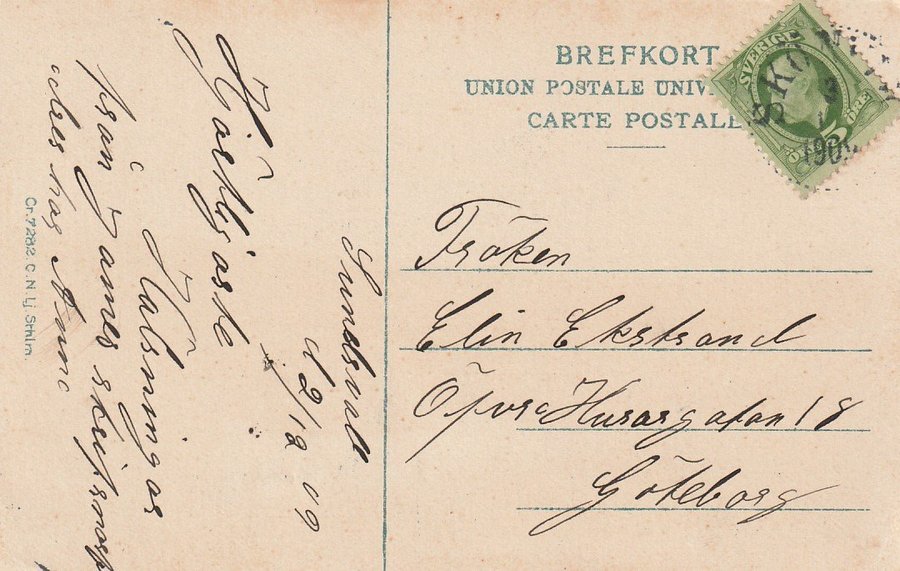 BREFKORT
UNION POSTALE UNIV
CARTE POSTALE
SVERIGE
5
ÖRE
190
Fröken
Elin Ekstrand
Öfvre Husargatan 18
Göteborg
Sundsvall
d 2/12 09
Hjärtligaste
Hälsningar
från James
Cr. 7282. C. N:s Lj. Sthlm.